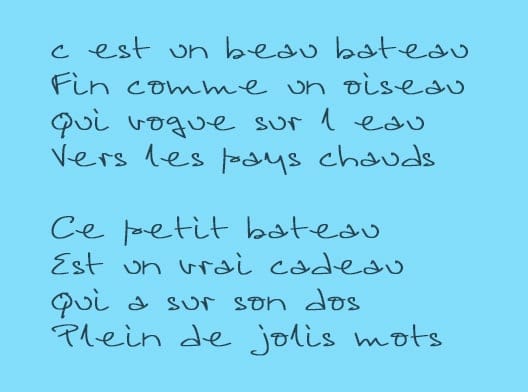 c est un beau bateau
Fin comme un oiseau
Qui vogue sur l eau
Vers les pays chauds
Ce petit bateau
Est un vrai cadeau
Qui a sur son dos
Plein de jolis mots